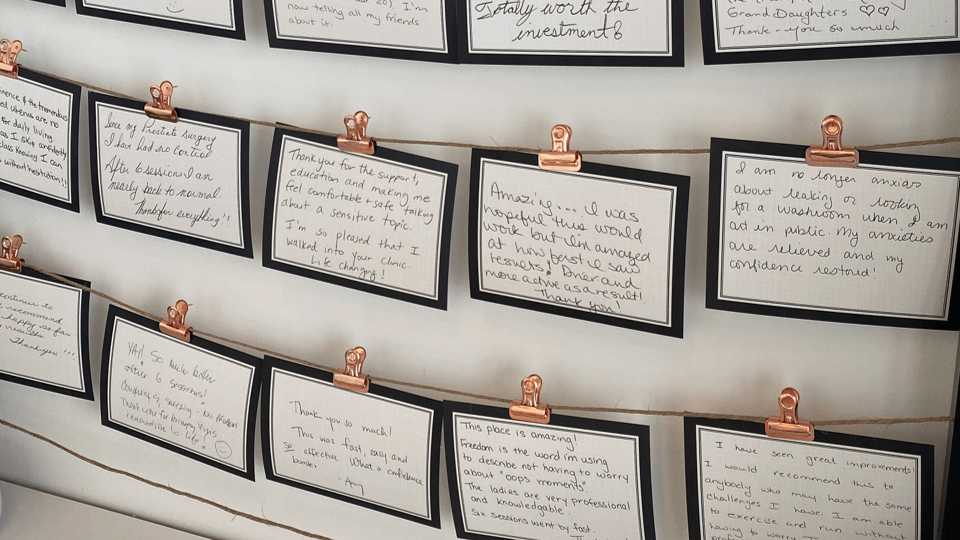 now telling all my friends
about it.
Totally worth the
investment
GrandDaughters ♡♡
Thank-you so much
for daily living.
without hesitation!!
Since my Prostate surgery
I have had no control
After 6 sessions I am
nearly back to normal
Thanks for everything!!
Thank you for the support,
education and making me
feel comfortable + safe talking
about a sensitive topic.
I'm so pleased that I
walked into your clinic.
Life changing!
Amazing.... I was
hopeful this would
work but I'm amazed
at how fast I saw
results! Drier and
more active as a result!
Thank you!
I am no longer anxious
about leaking or looking
for a washroom when I am
out in public. My anxieties
are relieved and my
confidence restored!
continue to
recommend
happy so far
results.
Thankyou...
YAY! So Much better
after 6 sessions!
Coughing & sneezing - No Problem
Thank you for bringing
innovation to life!
Thank you so much!
This was fast, easy and
so effective. What a confidence
booster
- Amy
This place is amazing!
Freedom is the word im using
to describe not having to worry
about "oops moments"
The ladies are very professional
and knowledgable.
Six sessions went by fast
I have seen great improvements!
I would recommend this to
anybody who may have the same
challenges I have. I am able
to exercise and run without
having to worry